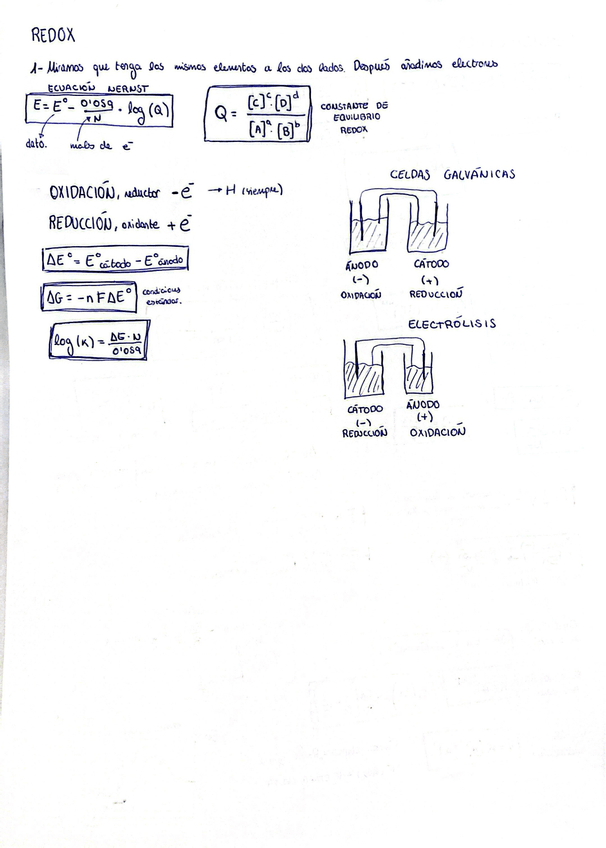 REDOX
1- Miramos que tenga los mismos elementos a los dos lados. Después añadimos electrones
ECUACIÓN NERNST
E = E° - 0'059/N · log(Q)
dato. moles de e⁻
Q = [C]ᶜ·[D]ᵈ / [A]ᵃ·[B]ᵇ
CONSTANTE DE
EQUILIBRIO
REDOX
OXIDACIÓN, reductor -e⁻ → H (siempre)
REDUCCIÓN, oxidante +e⁻
ΔE° = E°cátodo - E°ánodo
ΔG = -nFΔE°
condiciones
estándar.
log(K) = ΔE·N / 0'059
CELDAS GALVÁNICAS
ÁNODO CÁTODO
(-) (+)
OXIDACIÓN REDUCCIÓN
ELECTRÓLISIS
CÁTODO ÁNODO
(-) (+)
REDUCCIÓN OXIDACIÓN